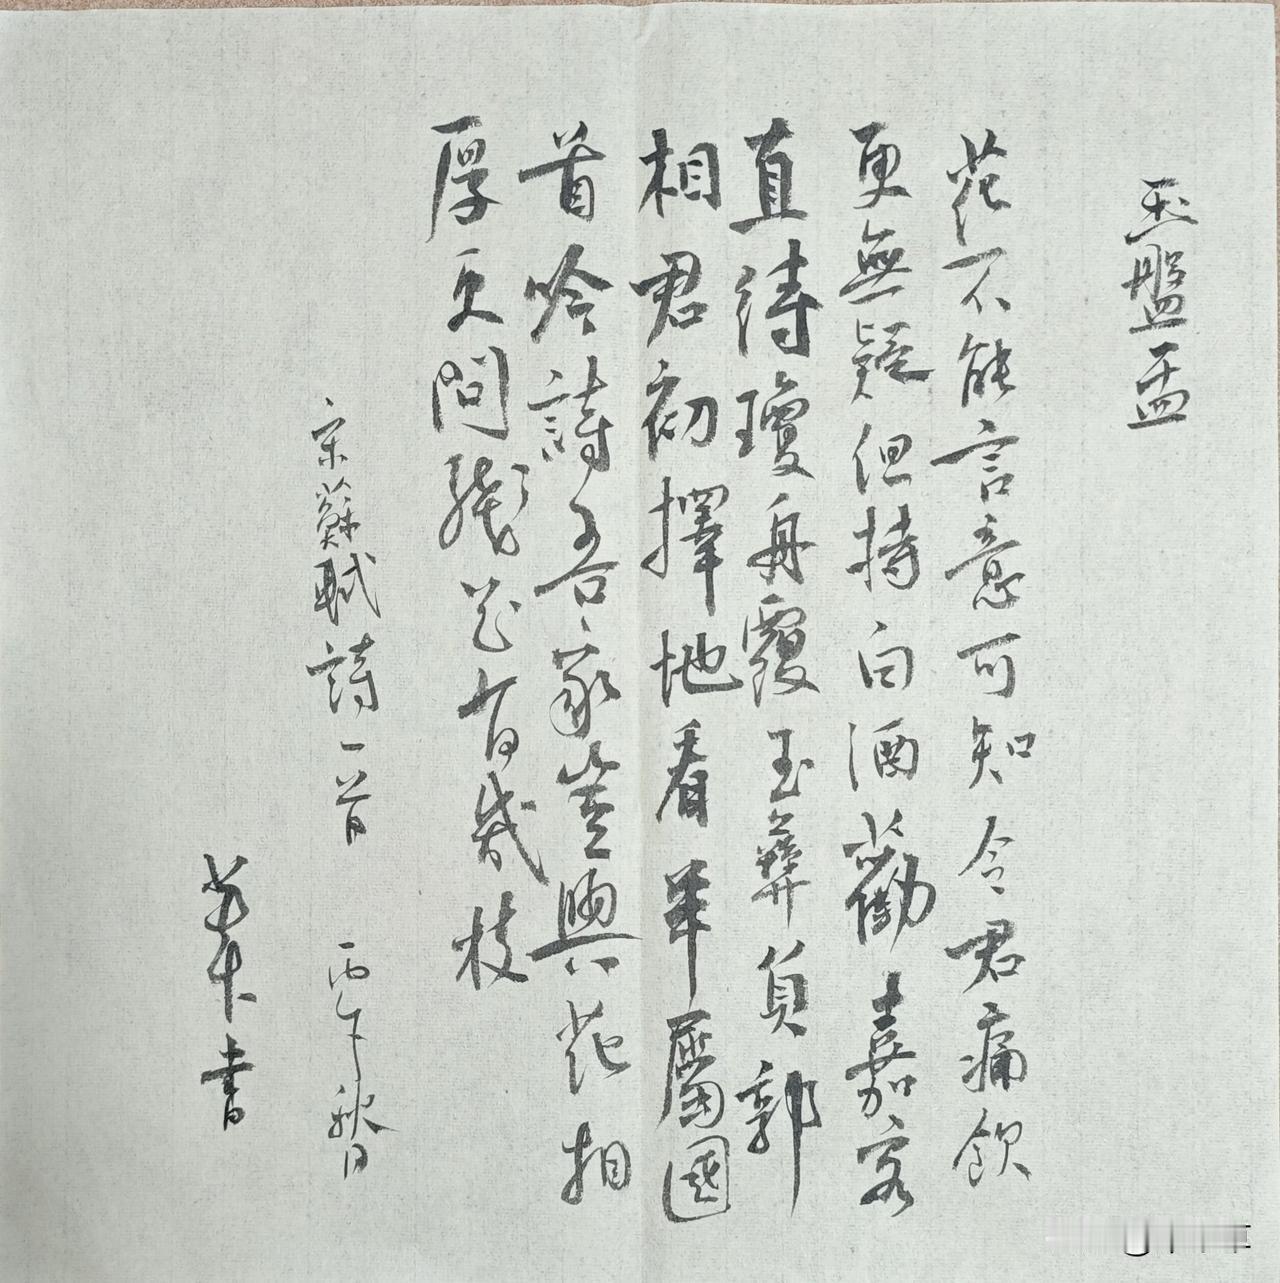 玉盤盂
花不能言意可知令君痛飲
更無疑但持白酒勸嘉客
直待瓊舟覆玉彝負郭
相君初擇地看羊屬國
首吟詩吾家豈與花相
厚更問殘芳有幾枝
宋蘇軾詩一首 丙午秋日
書